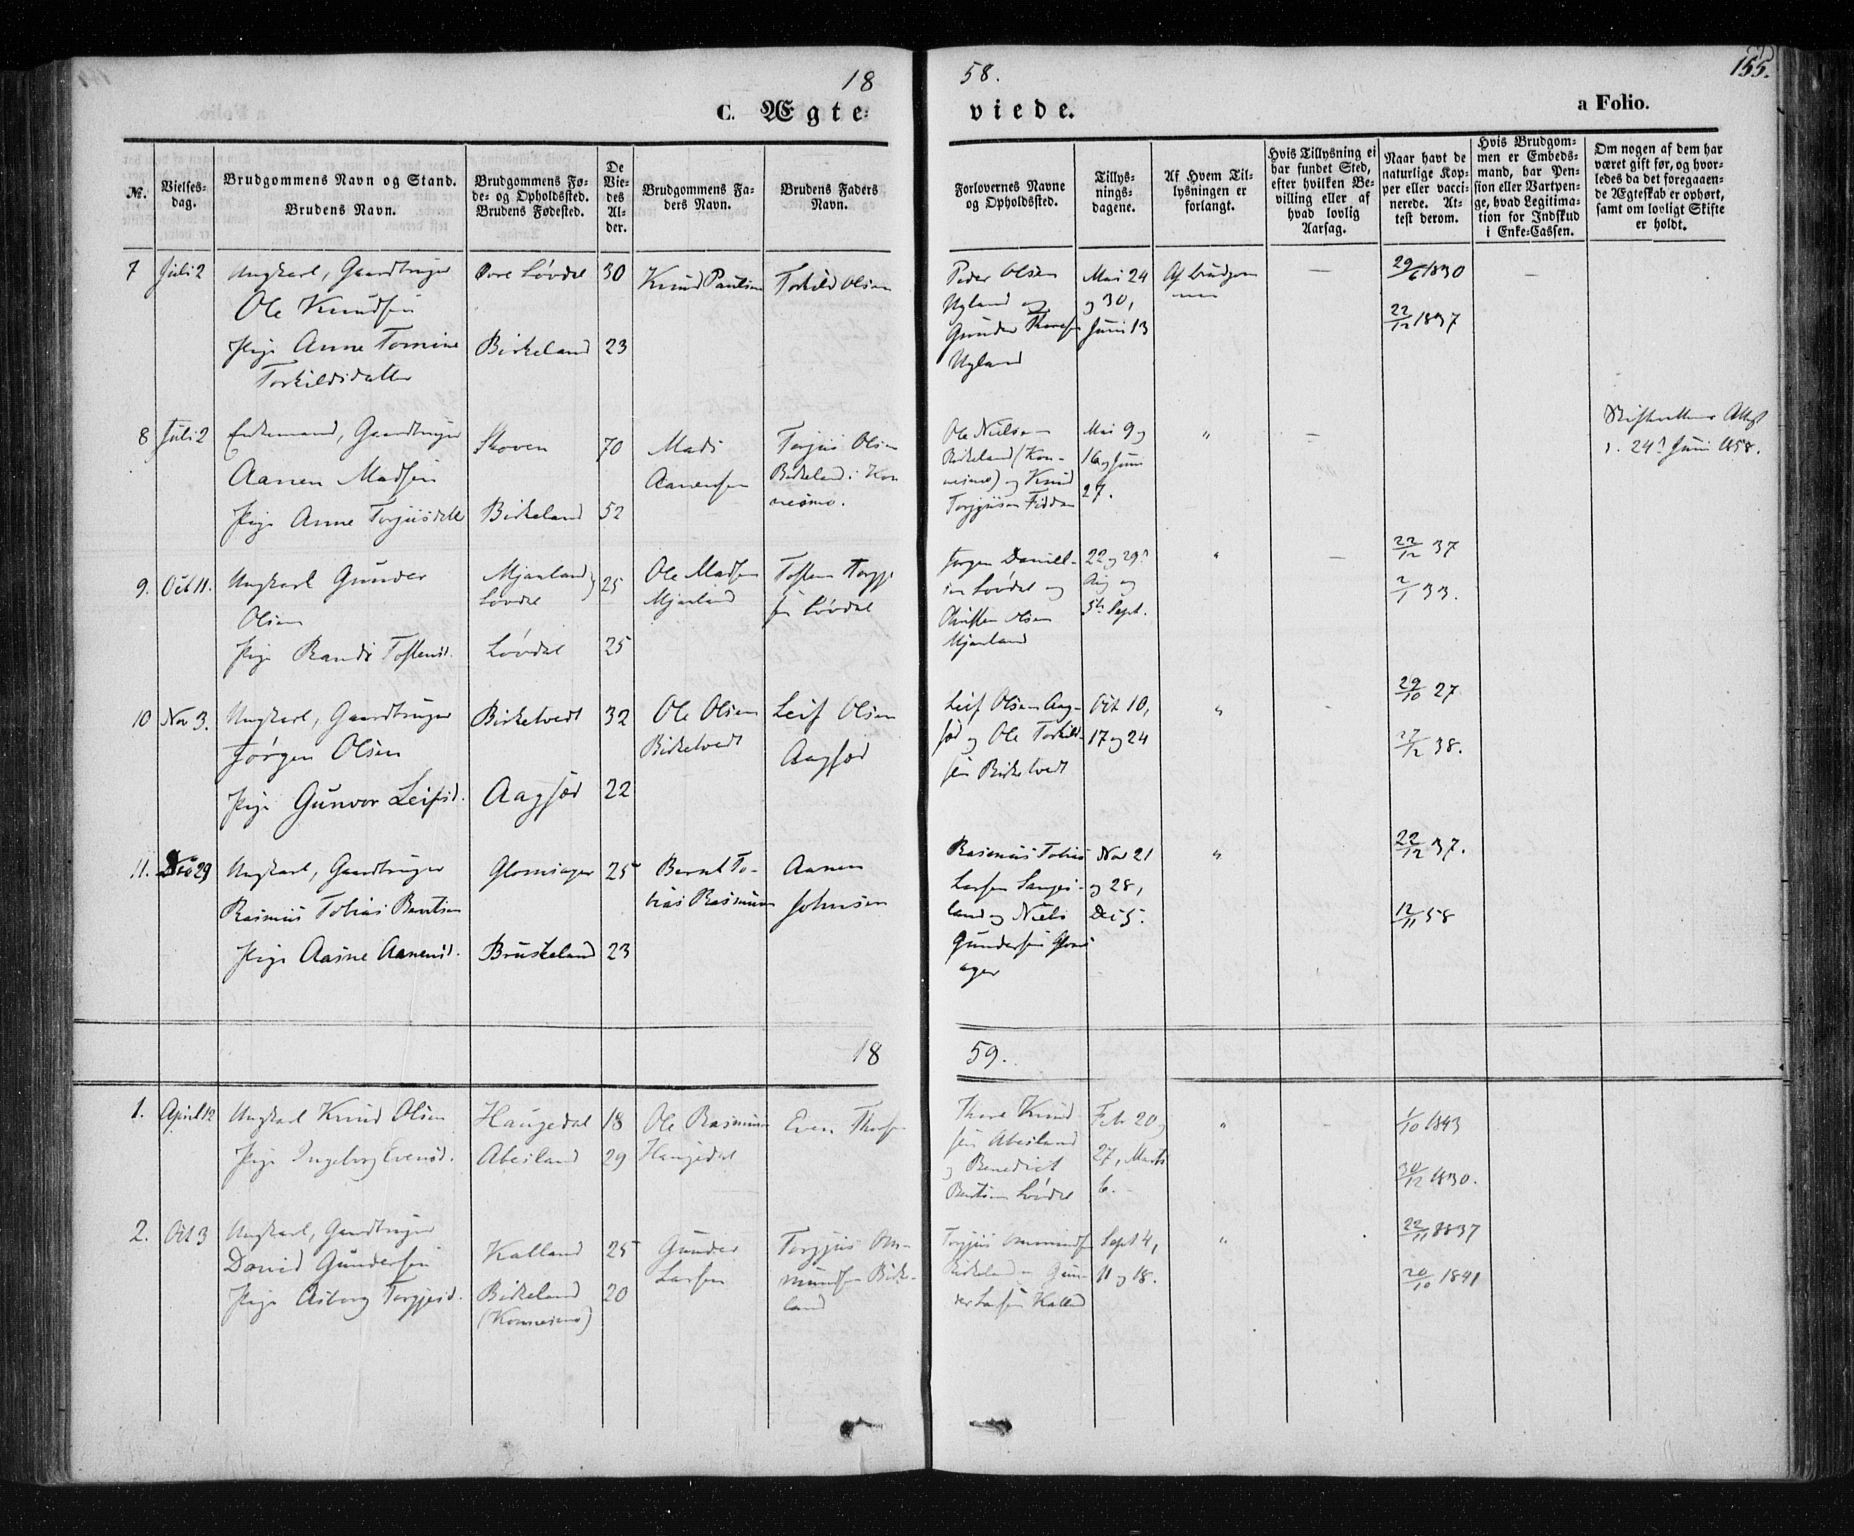 18 58. 155.
C. Ægte- viede. a Folio.
№.
Vielses-
dag.
Brudgommens Navn og Stand.
Brudens Navn.
Brudgommens Fø-
de- og Opholdssted.
Brudens Fødested.
De
Vie-
des
Al-
der.
Brudgommens Fa-
ders Navn.
Brudens Faders
Navn.
Forlovernes Navne
og Opholdssted.
Tillys-
nings-
dagene.
Af Hvem Til-
lysningen er
forlangt.
Hvis Tillysning ei
har fundet Sted,
efter hvilken Be-
villing eller af
hvad lovlig
Aarsag.
Naar havt de
naturlige Kop-
per eller vacci-
nerede. At-
test derom.
Hvis Brudgom-
men er Embeds-
mand, har Pen-
sion eller Vartpen-
ge, hvad Legitima-
tion for Indskud
i Enke-Cassen.
Om nogen af dem har
været gift før, og hvor-
ledes da det foregaaen-
de Ægteskab er ophørt,
samt om lovligt Skifte
er holdt.
7 Juli 2 Ungkarl, Gaardbruger
Ole Knudsen
Pige Anne Tomine
Torkildsdatter
Øvre Løvdal 30
Birkeland 23
Knud Paulsen
Torkild Olsen
Peder Olsen
Uyland og
Gunder Thores
Uyland
Mai 24
og 30,
Juni 13
Af Brudgom
men
—
29/6 1830
22/12 1837
—
8 Juli 2 Enkemand, Gaardbruger
Aanen Madsen
Pige Anne Torjusdatter
Skoven 70
Birkeland 52
Mads
Aanensen
Torjus Olsen
Birkeland i Kon
nesmo.
Ole Nielsen
Birkeland (Kon-
nesmo) og Knud
Torgjusen Fiddan
Mai 9 og
16 og Juni
27.
"
—
Skifterettens Attest
24d Juni 1858.
9. Oct 11. Ungkarl Gunder
Olsen
Pige Randi Toftensd.
Mjaaland,
Løvdal 25
Løvdal 25
Ole Madsen
Mjaaland
Toften Torgju
sen Løvdal
Jørgen Daniel-
sen Løvdal og
Christen Olsen
Mjaaland
22 og 29d
Aug og
5te Sept.
"
—
22/12 37
2/1 33.
10 Nov 3. Ungkarl, Gaardbruger
Jørgen Olsen
Pige Gunvor Leifsd.
Birketvedt 32
Aagsæd 22
Ole Olsen
Birketvedt
Leif Olsen
Aagsæd
Leif Olsen Aag-
sæd og Ole Torkild-
sen Birketvedt
Oct 10,
17 og 24
"
29/10 27
27/12 38.
11. Dec 29 Ungkarl, Gaardbruger
Rasmus Tobias Berntsen
Pige Aasne Aanensd.
Glomsager 25
Bruskeland 23
Bernt To-
bias Rasmusen
Aanen
Johnsen
Rasmus Tobias
Larsen Langes-
land og Niels
Gundersen Gloms
ager
Nov 21
og 28,
Dec 5.
"
22/12 37.
12/11 58
18 59.
1. April 12 Ungkarl Knud Olsen
Pige Ingeborg Evensd.
Haugedal 18
Abesland 29
Ole Rasmusen
Haugedal
Even Thorsen
Thore Knud
sen Abesland
og Benedict
Bentsen Løvdal
Febr 20 og
27, Marts
6.
"
1/10 1843
30/12 1830.
2. Oct 3 Ungkarl, Gaardbruger
David Gundersen
Pige Asborg Torgjusd.
Kalland 25
Birkeland 20
(Konnesmo)
Gunder
Larsen
Torgjus Om-
mundsen Birke-
land
Torgjus Ommundsen
Birkeland og Gun-
der Larsen Kalland
Sept 4,
11 og 18.
"
22/11 1837
20/10 1841